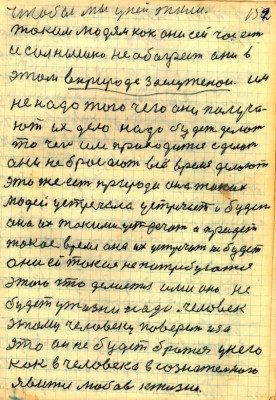 чтобы мы у ней жили. 152
таким людям как они сей час нет
и солнышко не обогреет они в
этом в природе заслуженои. им
не надо того чего они получа
ют их дело надо будет делат
то чем им приходится
они не бросают всё время делают
это же ест природа она таких
людей устречала устричает и будет
она их такими устречат и придет
такое время она их устричат не будет
они ей такие не
этого что делается или оно не
будет у жизни надо. человек
этому человеку поверит за
это он не будет братся у него
как в человека в сознателного
явится любов к жизни.